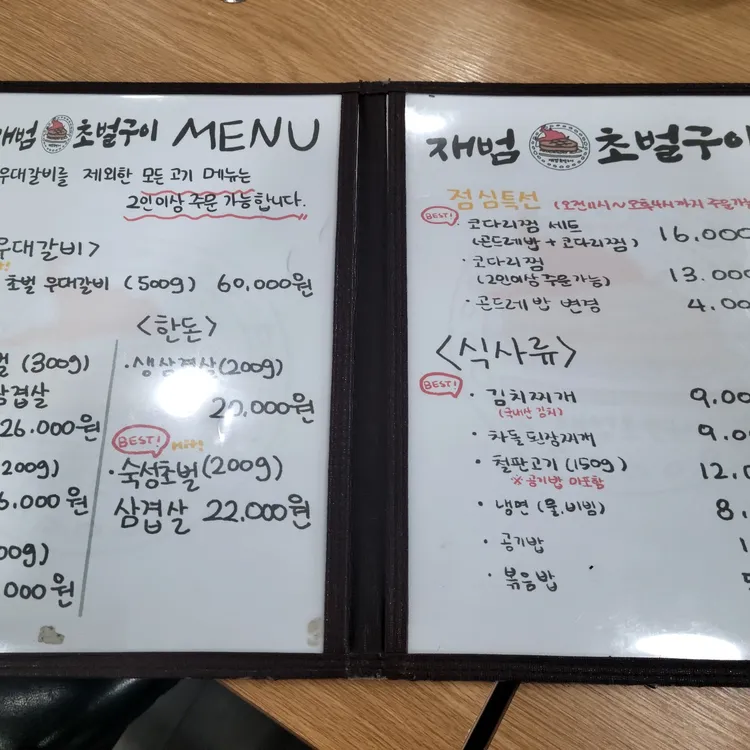 재범 초벌구이 MENU
우대갈비를 제외한 모든 고기 메뉴는
2인이상 주문 가능합니다.
우대갈비>
초벌 우대갈비 (500g) 60,000원
<한돈>
(300g)
삼겹살
26.000원
200g)
6.000원
00g)
000원
·생삼겹살(200g)
20,000원
BEST!
·숙성초벌(200g)
삼겹살 22,000원
재범 초벌구이
점심특선 (오전11시~오후4시까지 주문가능
BEST!
· 코다리찜 세트
(곤드레밥 + 코다리찜) 16,000
· 코다리찜
(2인이상 주문가능) 13.000
· 곤드레밥 변경 4.00
<식사류>
BEST!
· 김치찌개 9,00
(국내산 김치)
· 차돌된장찌개 9.0
· 철판고기 (150g) 12,
※공기밥 미포함
· 냉면 (물,비빔) 8,
· 공기밥 1
· 볶음밥